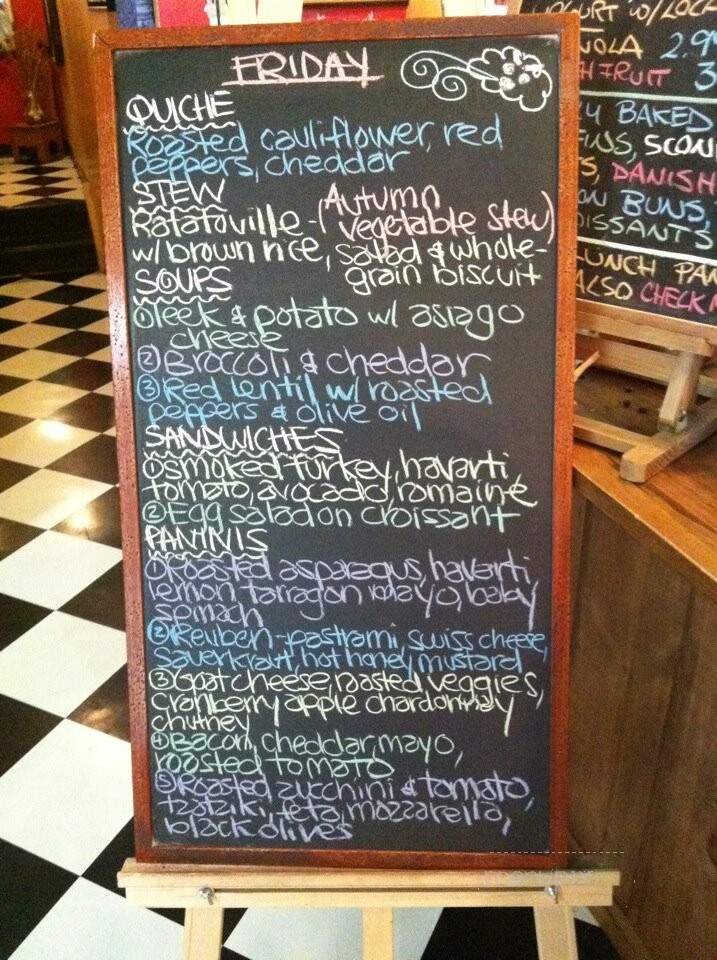 FRIDAY
QUICHE
Roasted cauliflower, red
peppers, cheddar
STEW
Ratatouille - (Autumn
vegetable stew)
w/ brown rice, salad & whole-
grain biscuit
SOUPS
① leek & potato w/ asiago
cheese
② Broccoli & cheddar
③ Red lentil w/ roasted
peppers & olive oil
SANDWICHES
① smoked turkey, havarti,
tomato, avocado, romaine
② Egg salad on croissant
PANINIS
① Roasted asparagus, havarti,
lemon tarragon mayo, baby
spinach
② Reuben - pastrami, swiss cheese,
sauerkraut, hot honey mustard
③ Goat cheese, roasted veggies,
cranberry apple chardonnay
chutney
④ Bacon, cheddar, mayo,
roasted tomato
⑤ Roasted zucchini & tomato,
tzatziki, feta, mozzarella,
black olives
W/
2.9
FRUIT 3
BAKED
DANISH
BUNS,
LUNCH
ALSO CHECK